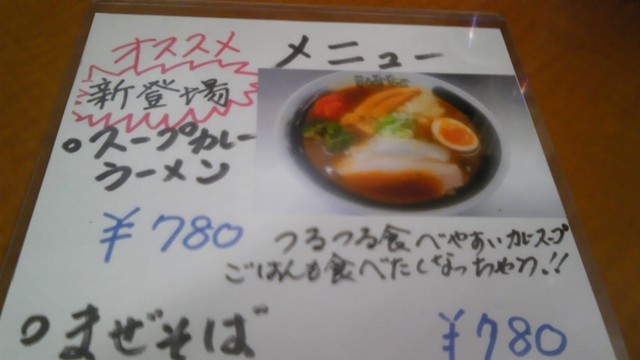 オススメ メニュー
新登場
○スープカレー
ラーメン
¥780
つるつる食べやすいカレースープ
ごはんも食べたくなっちゃう!!
○まぜそば ¥780